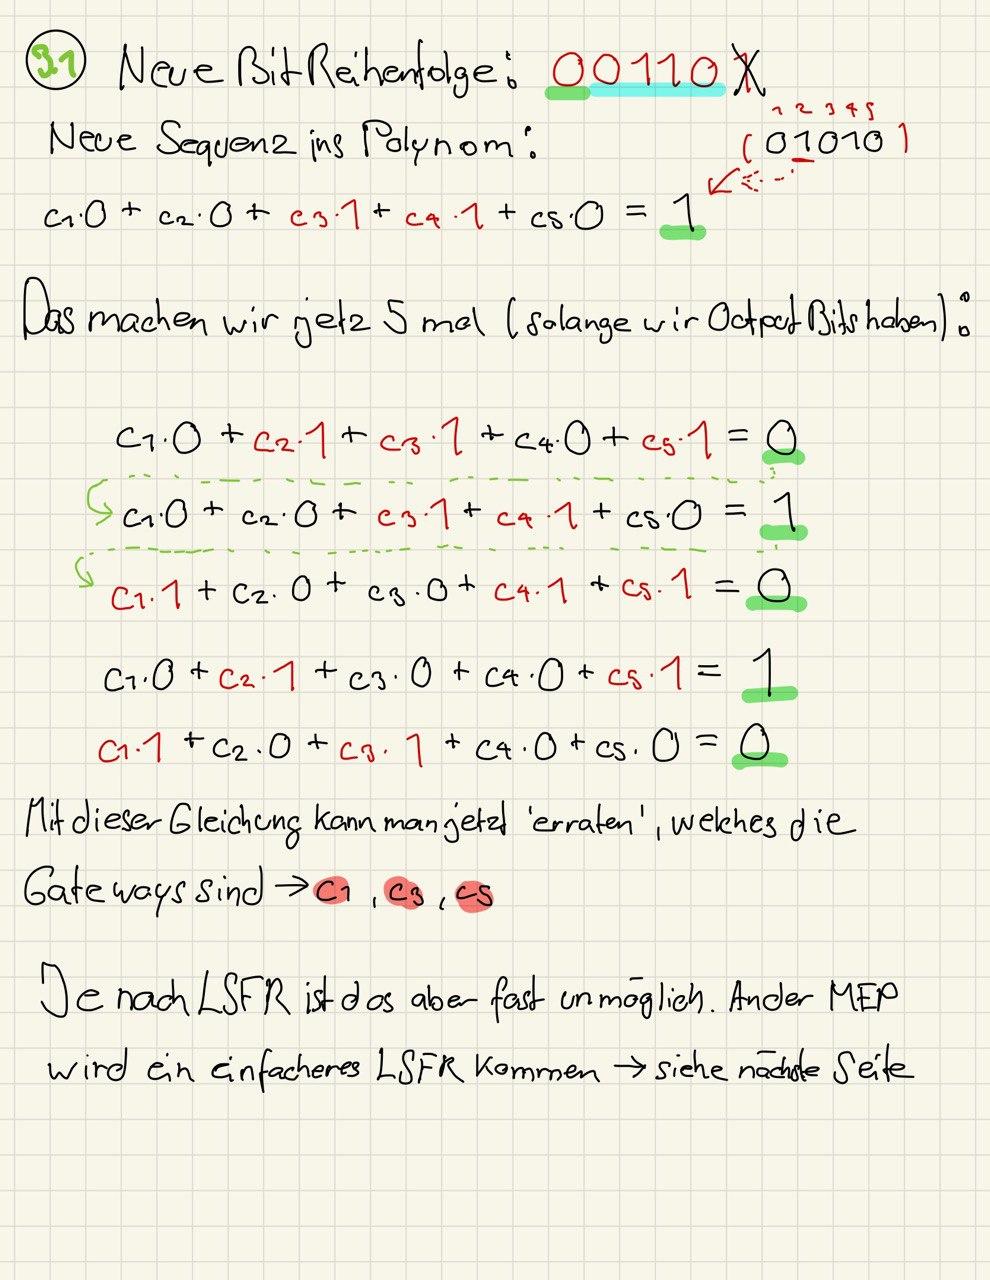 9.1 Neue Bit Reihenfolge: 001101
Neue Sequenz ins Polynom:
1 2 3 4 5
(01010)
c1·0 + c2·0 + c3·1 + c4·1 + c5·0 = 1
Das machen wir jetz 5 mal (solange wir Octput Bits haben):
c1·0 + c2·1 + c3·1 + c4·0 + c5·1 = 0
c1·0 + c2·0 + c3·1 + c4·1 + c5·0 = 1
c1·1 + c2·0 + c3·0 + c4·1 + c5·1 = 0
c1·0 + c2·1 + c3·0 + c4·0 + c5·1 = 1
c1·1 + c2·0 + c3·1 + c4·0 + c5·0 = 0
Mit dieser Gleichung kann man jetzt 'erraten', welches die
Gateways sind → c1, c3, c5
Je nach LSFR ist das aber fast unmöglich. An der MEP
wird ein einfacheres LSFR kommen → siehe nächste Seite